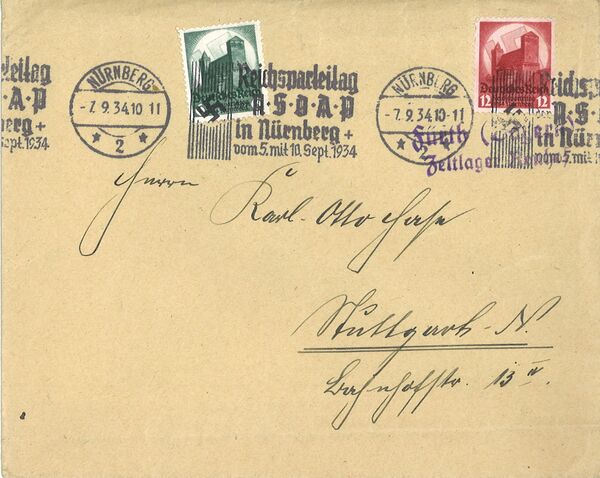 rteitag
D·A·P
berg +
Sept. 1934
NÜRNBERG
-7.9.34.10 11
* 2 *
Deutsches Reich
Reichsparteitag
N·S·D·A·P
in Nürnberg +
vom 5. mit 10. Sept. 1934
NÜRNBERG
-7.9.34.10-11
Deutsches Reich
12 12
Reichsp
N·S
in Nü
vom 5. mit
Fürth
Zeltlager
Herrn
Karl-Otto Hase
Stuttgart-N.
Bahnhofstr. 13 IV